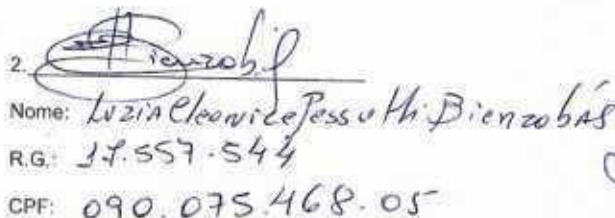 2. Bienzobás
Nome: Luzia Cleonice Pessutti Bienzobás
R.G.: 17.557.544
CPF: 090.075.468.05